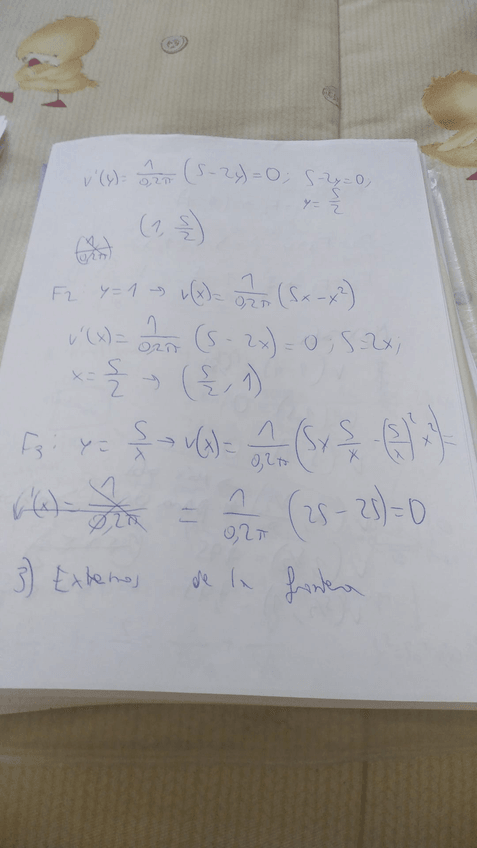 v'(y) = 1/(0,2π) (5-2y) = 0; 5-2y=0;
y = 5/2
(1, 5/2)
F2: y=1 → v(x) = 1/(0,2π) (5x-x²)
v'(x) = 1/(0,2π) (5-2x) = 0; 5=2x;
x = 5/2 → (5/2, 1)
F3: y = 5/x → v(x) = 1/(0,2π) (5x 5/x - (5/x)² x²) =
v'(x) = 1/(0,2π) = 1/(0,2π) (25-25) = 0
3) Extremos de la frontera